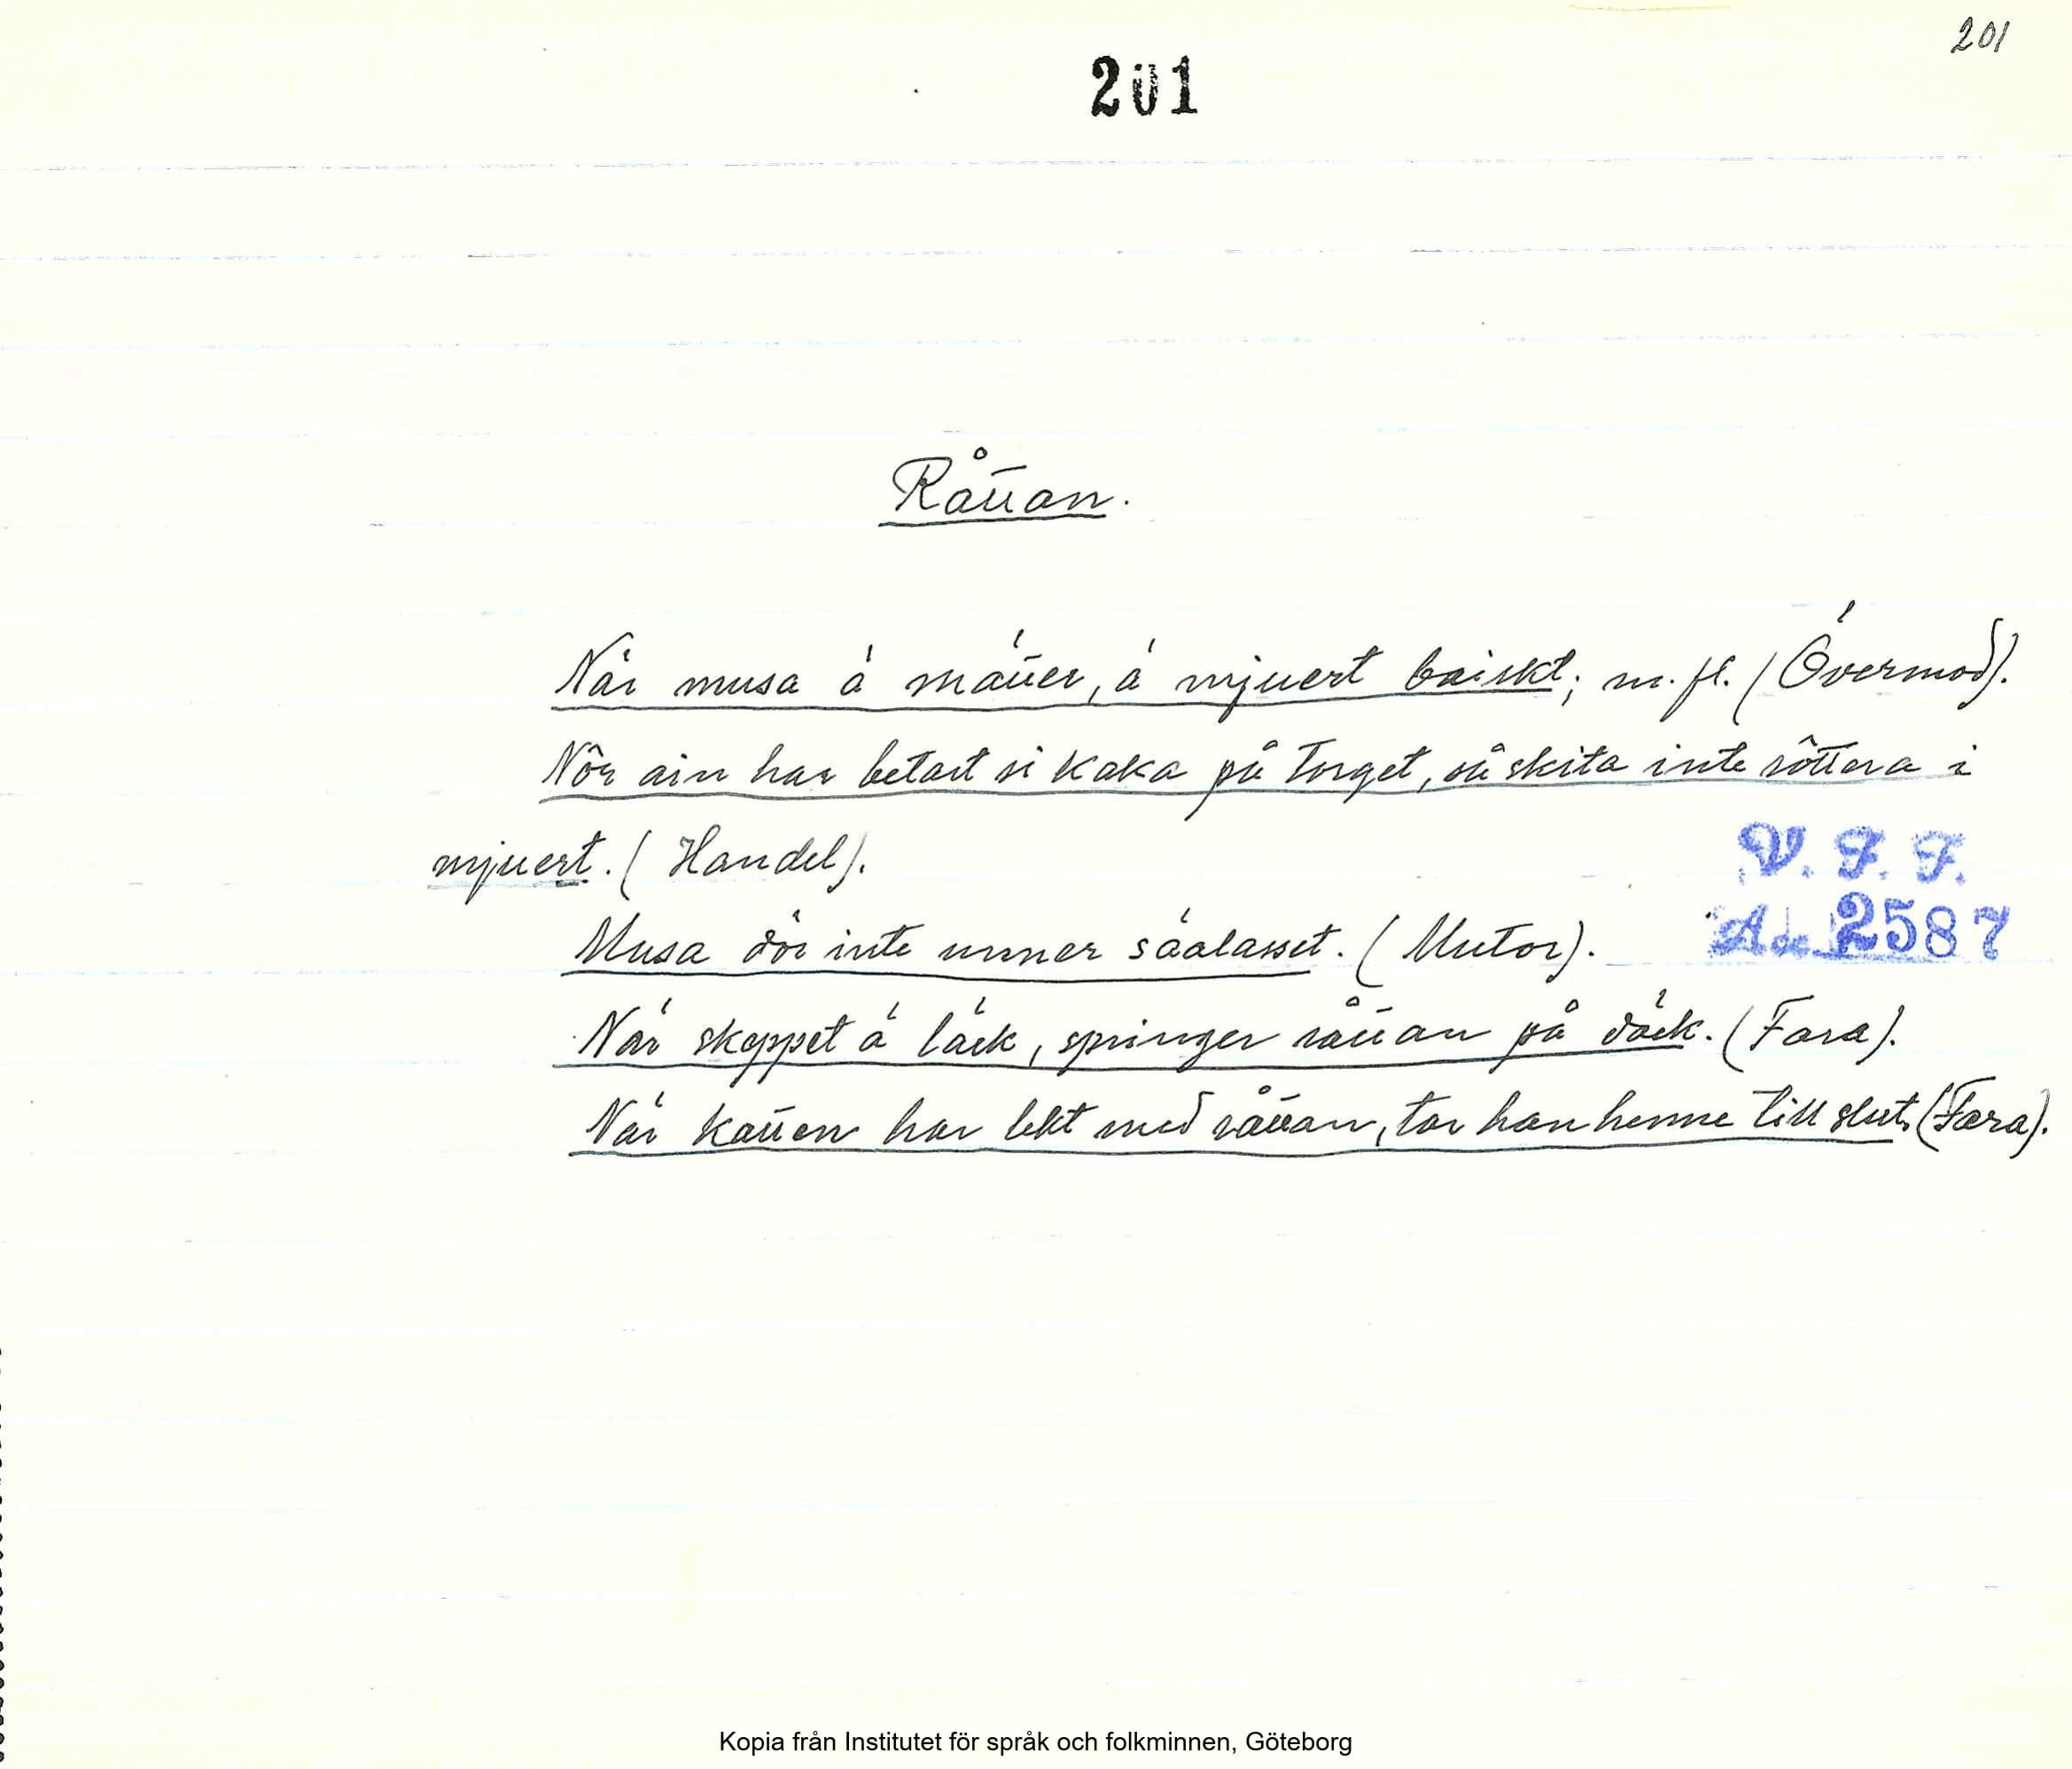 201
201
Råttan.
När musa ä mätter, ä mjuert baiskt; m. fl. (Övermod).
Nôr ain har betart si kaka på torget, så skita inte rôttera i
mjuert. (Handel).
V. F. F.
Musa dör inte unner säalasset. (Mutor).
Acc 2587
När skeppet ä läck, springer råttan på däck. (Fara).
När katten har lekt med råttan, tar han henne till slut. (Fara).
Kopia från Institutet för språk och folkminnen, Göteborg